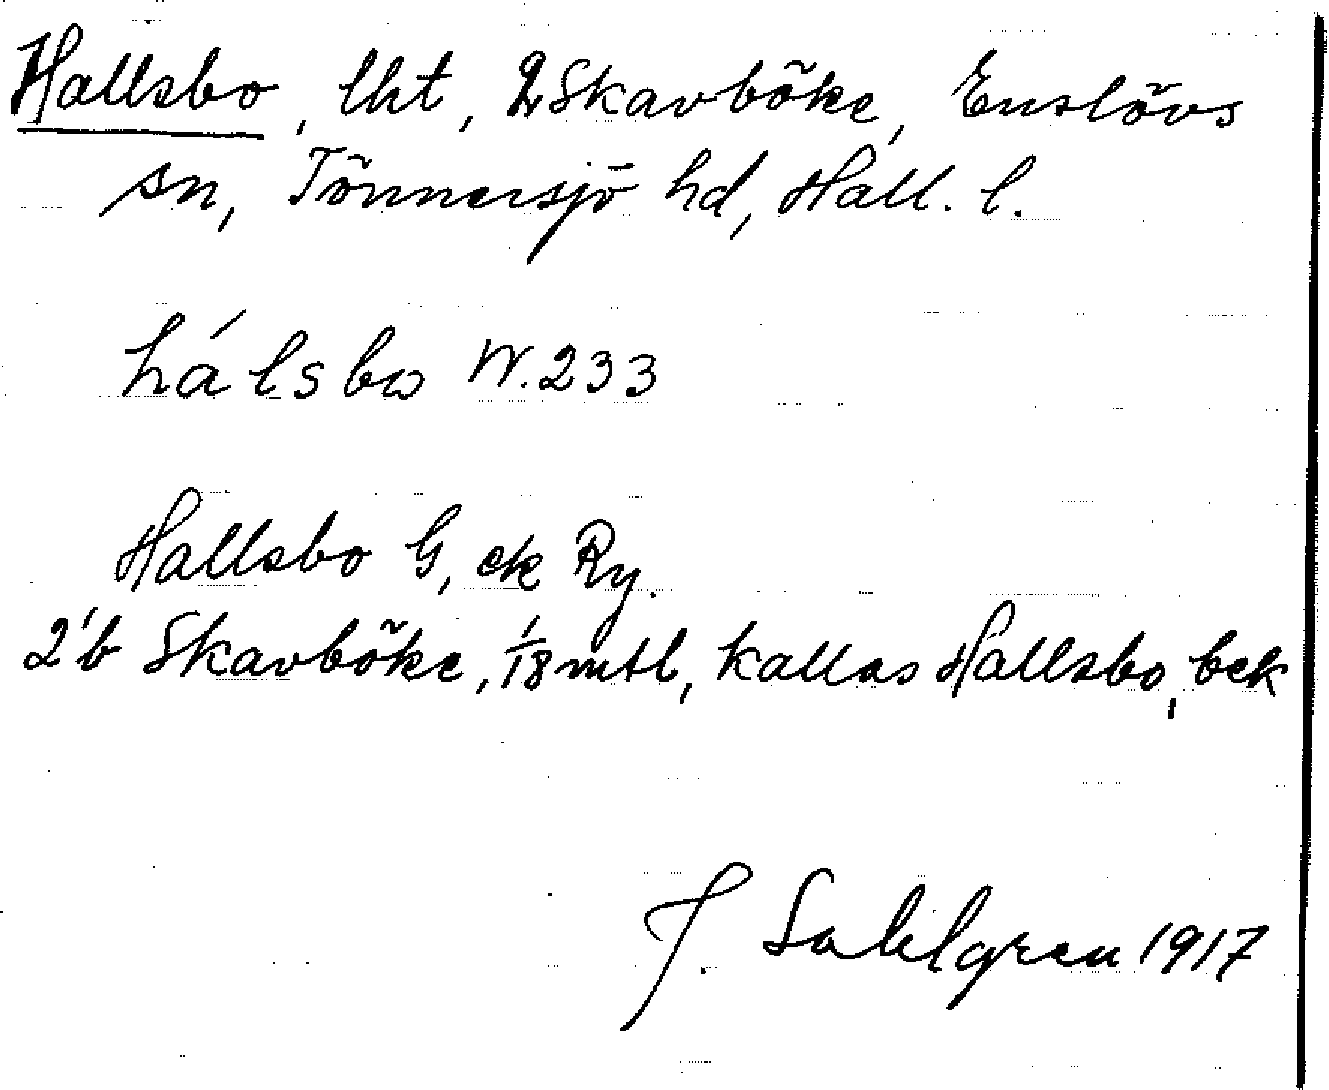 Hallsbo, lht, 2 Skavböke, Enslövs
sn, Tönnersjö hd, Hall. l.
hálsbω W.233
Hallsbo G, ek Ry.
2'b Skavböke, 1/18 mtl, kallas Hallsbo, bek
J. Sahlgren 1917